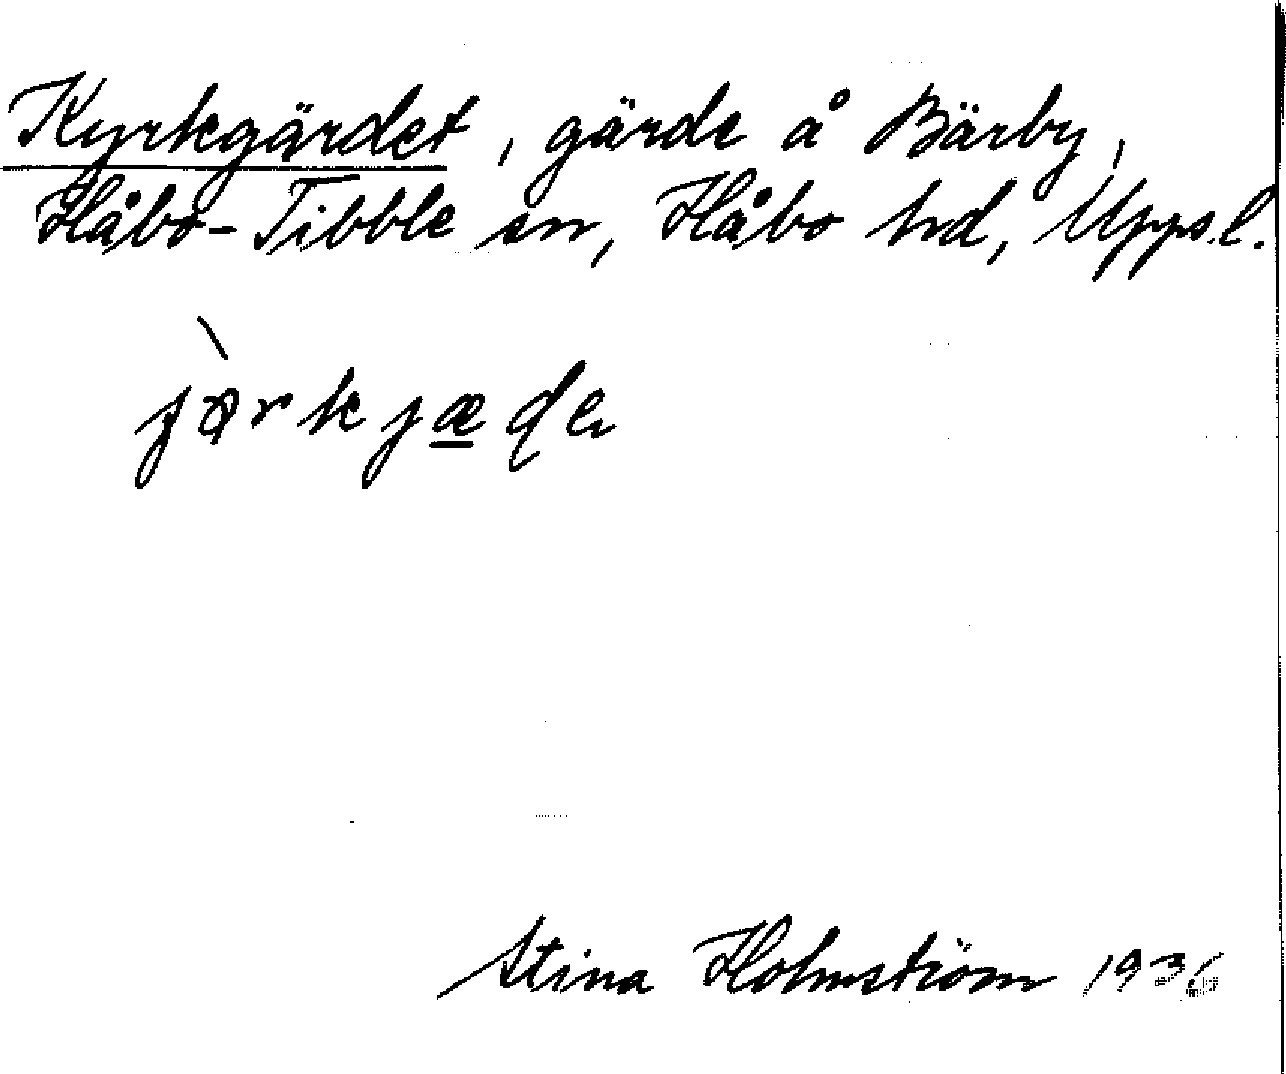 Kyrkgärdet, gärde å Bärby,
Håbo-Tibble sn, Håbo hd, Uppsl.
Stina Holmström 1936